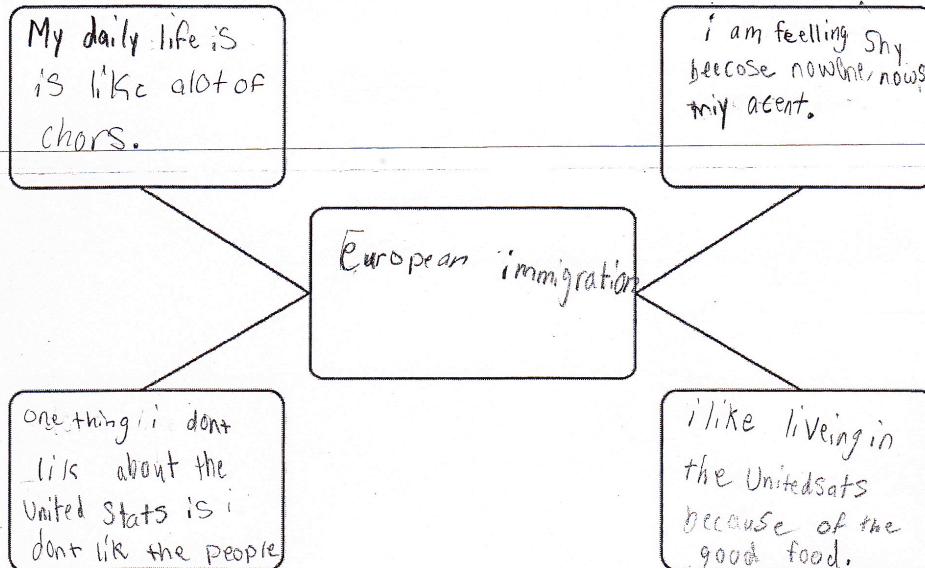 My daily life is
is like alot of
chors.
i am feelling shy
beecose nowone, nows
miy acent.
European immigration
one thing i dont
lik about the
United Stats is i
dont lik the people
i like liveing in
the Unitedsats
because of the
good food.